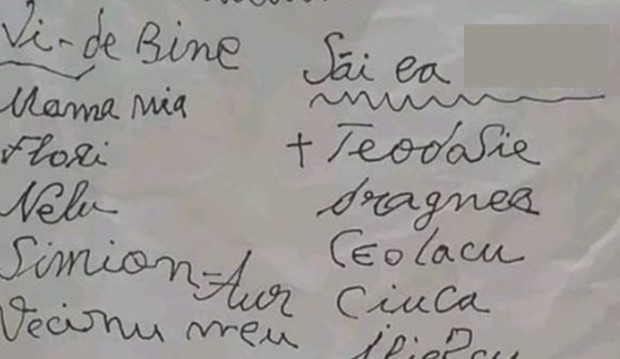 Vi-de Bine
Mama mia
Flori
Nelu
Simion-Aur
Vecinu meu
Săi ea
+ Teodosie
dragnea
Ceolacu
Ciuca